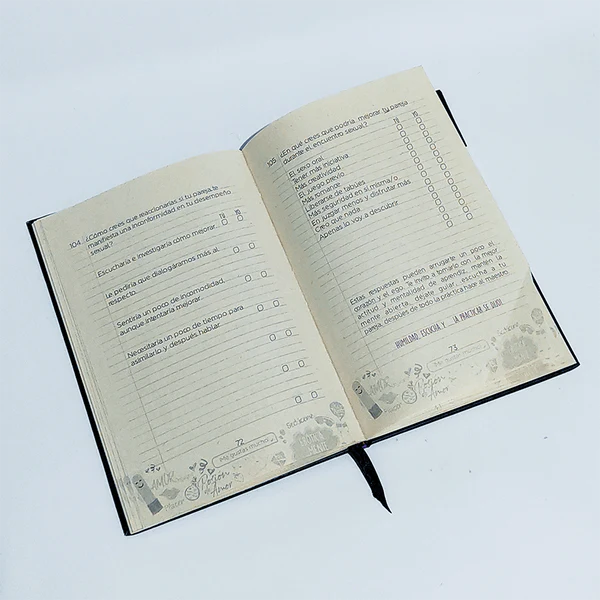 104. ¿Cómo crees que reaccionarías si tu pareja te
manifiesta una inconformidad en tu desempeño
sexual?
TÚ YO
Escucharía e investigaría cómo mejorar.
Le pediría que dialogáramos más al
respecto.
Sentiría un poco de incomodidad,
aunque intentaría mejorar.
Necesitaría un poco de tiempo para
asimilarlo y después hablar.
72
Me gustas mucho
AMOR
Placer
Poción
de Amor
Seducción
105. ¿En qué crees que podría mejorar tu pareja
durante el encuentro sexual?
TÚ YO
El sexo oral
Tener más iniciativa
Más creatividad
El juego previo
Más romance
Liberarse de tabúes
Más seguridad en sí misma/o
En juzgar menos y disfrutar más
Creo que nada
Apenas lo voy a descubrir
Estas respuestas pueden arrugarte un poco el
corazón y el ego. Te invito a tomarlo con la mejor
actitud y mentalidad de aprendiz, mantén la
mente abierta, déjate guiar, escucha a tu
pareja, después de todo la práctica hace al maestro.
HUMILDAD, ESCUCHA, Y ... ¡A PRACTICAR SE DIJO!
73
Me gustas mucho
AMOR
Placer
Poción
de Amor